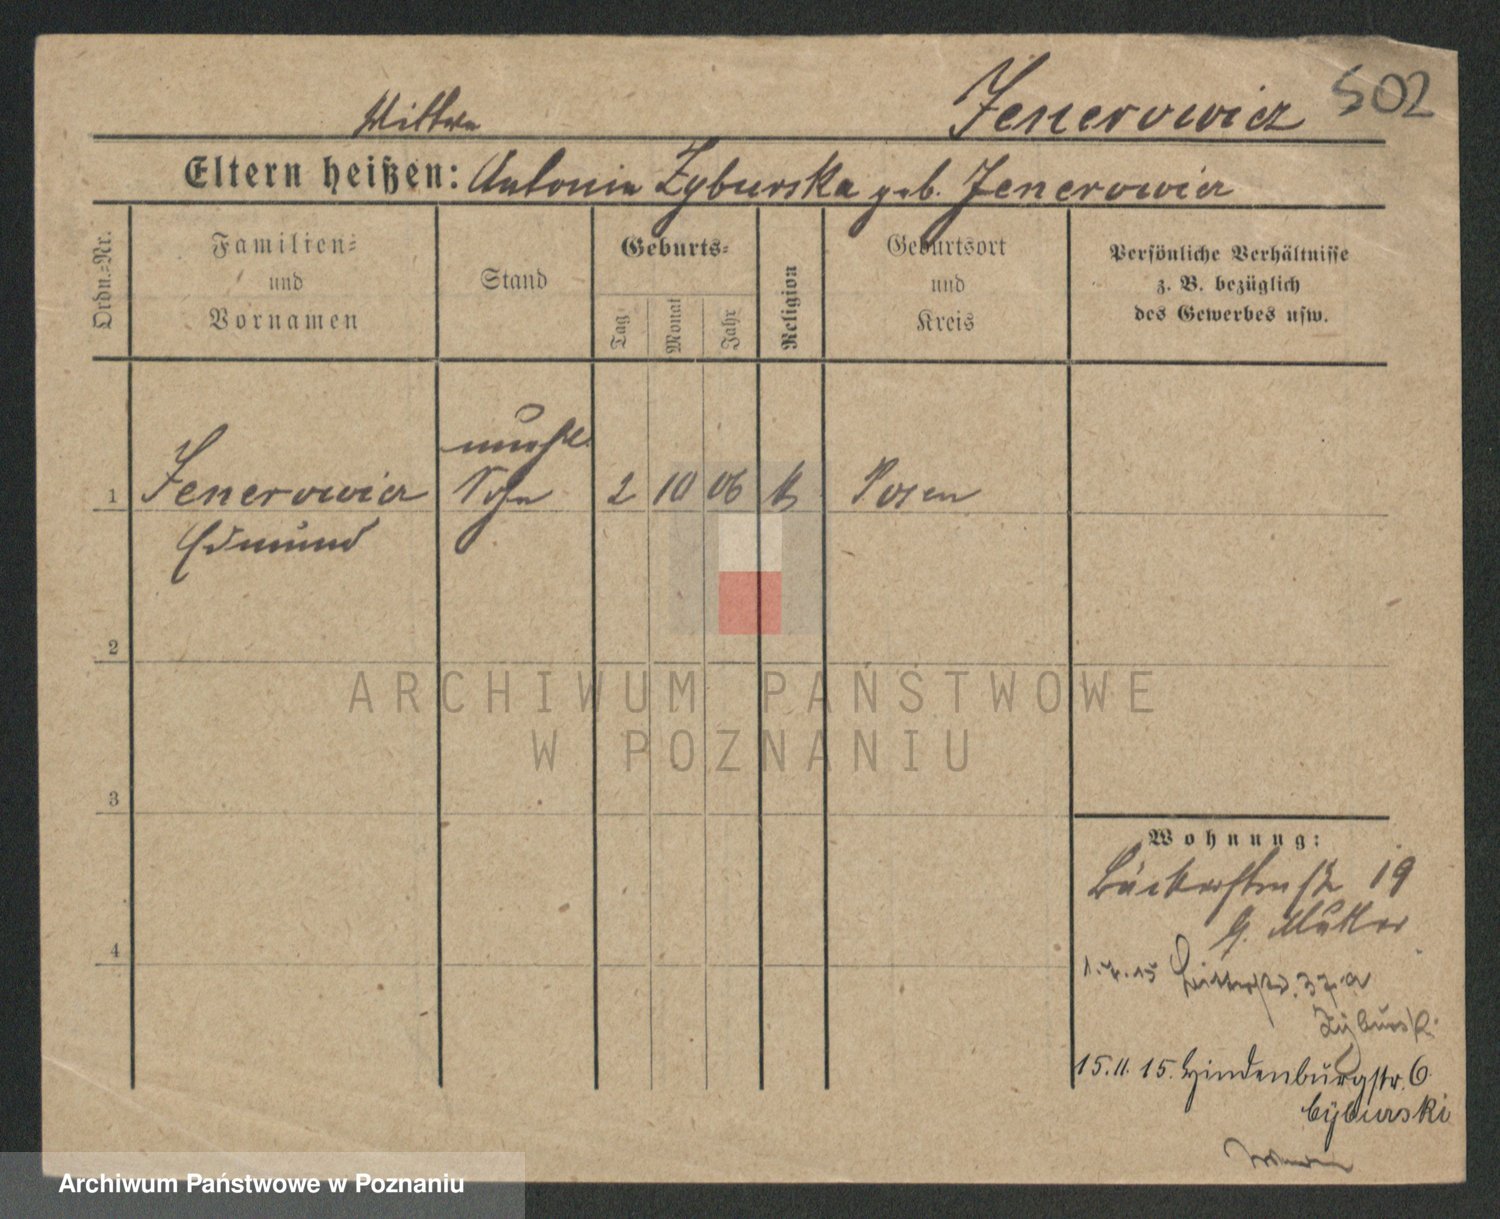 Jenerowicz 502
Eltern heißen: Antonin Zyburska geb. Jenerowicz
Ordn.-Nr.
Familien-
und
Vornamen
Stand
Geburts-
Tag
Monat
Jahr
Religion
Geburtsort
und
Kreis
Persönliche Verhältnisse
z. B. bezüglich
des Gewerbes usw.
unehel.
1 Jenerowicz Sohn 2 10 06 k Posen
Edmund
2
3
4
Wohnung:
Bäckerstraße 19
b. Mutter
1.4.15 37a
Zyburski
15.11.15. Hindenburgstr. 6
Cyburski
ARCHIWUM PAŃSTWOWE
W POZNANIU
Archiwum Państwowe w Poznaniu